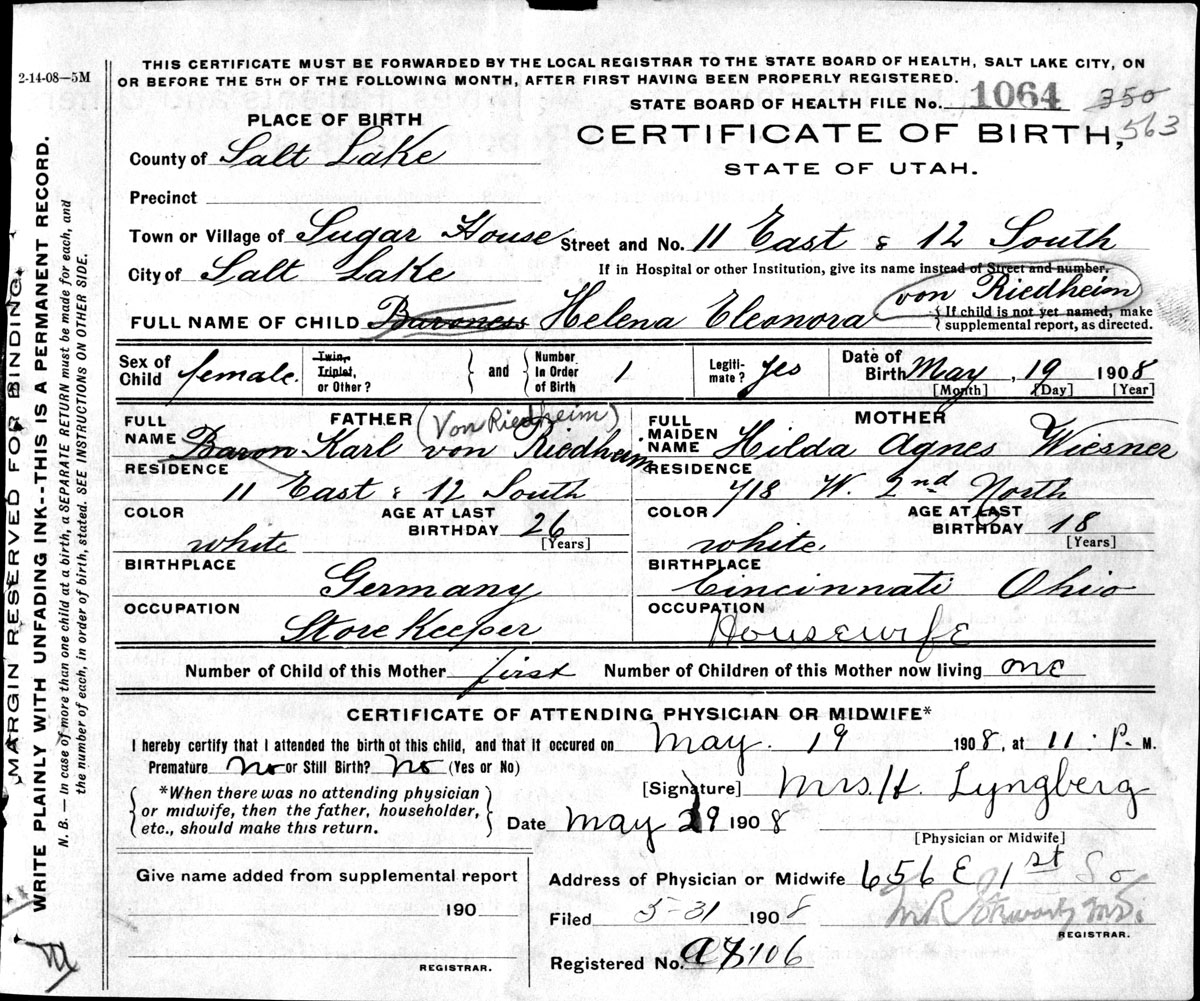 2-14-08—5M
THIS CERTIFICATE MUST BE FORWARDED BY THE LOCAL REGISTRAR TO THE STATE BOARD OF HEALTH, SALT LAKE CITY, ON
OR BEFORE THE 5TH OF THE FOLLOWING MONTH, AFTER FIRST HAVING BEEN PROPERLY REGISTERED.
STATE BOARD OF HEALTH FILE No. 1064 350
563
PLACE OF BIRTH
CERTIFICATE OF BIRTH,
STATE OF UTAH.
County of Salt Lake
Precinct
Town or Village of Sugar House Street and No. 11 East & 12 South
City of Salt Lake If in Hospital or other Institution, give its name instead of Street and number.
von Riedheim
FULL NAME OF CHILD Baroness Helena Eleonora
{ If child is not yet named, make
supplemental report, as directed.
Sex of Child female. Twin, Triplet, or Other? } and { Number In Order of Birth 1 Legiti-mate? Yes Date of Birth May, 19 1908
[Month] [Day] [Year]
FATHER (Von Riedheim)
FULL NAME Baron Karl von Riedheim
RESIDENCE
11 East & 12 South
COLOR white AGE AT LAST BIRTHDAY 26
[Years]
BIRTHPLACE
Germany
OCCUPATION
Store Keeper
MOTHER
FULL MAIDEN NAME Hilda Agnes Wiesner
RESIDENCE
718 W. 2nd North
COLOR white. AGE AT LAST BIRTHDAY 18
[Years]
BIRTHPLACE
Cincinnati Ohio
OCCUPATION
Housewife
Number of Child of this Mother first Number of Children of this Mother now living one
CERTIFICATE OF ATTENDING PHYSICIAN OR MIDWIFE*
I hereby certify that I attended the birth of this child, and that it occured on May. 19 1908, at 11. P. M.
Premature No or Still Birth? No (Yes or No)
{ *When there was no attending physician
or midwife, then the father, householder,
etc., should make this return. }
[Signature] Mrs. H. Lyngberg
Date May 29 1908
[Physician or Midwife]
Give name added from supplemental report
190
REGISTRAR.
Address of Physician or Midwife 656 E 1st So
Filed 5-31 1908
M.D.
REGISTRAR.
Registered No. 106
MARGIN RESERVED FOR BINDING.
WRITE PLAINLY WITH UNFADING INK--THIS IS A PERMANENT RECORD.
N. B. — In case of more than one child at a birth, a SEPARATE RETURN must be made for each, and
the number of each, in order of birth, stated. SEE INSTRUCTIONS ON OTHER SIDE.